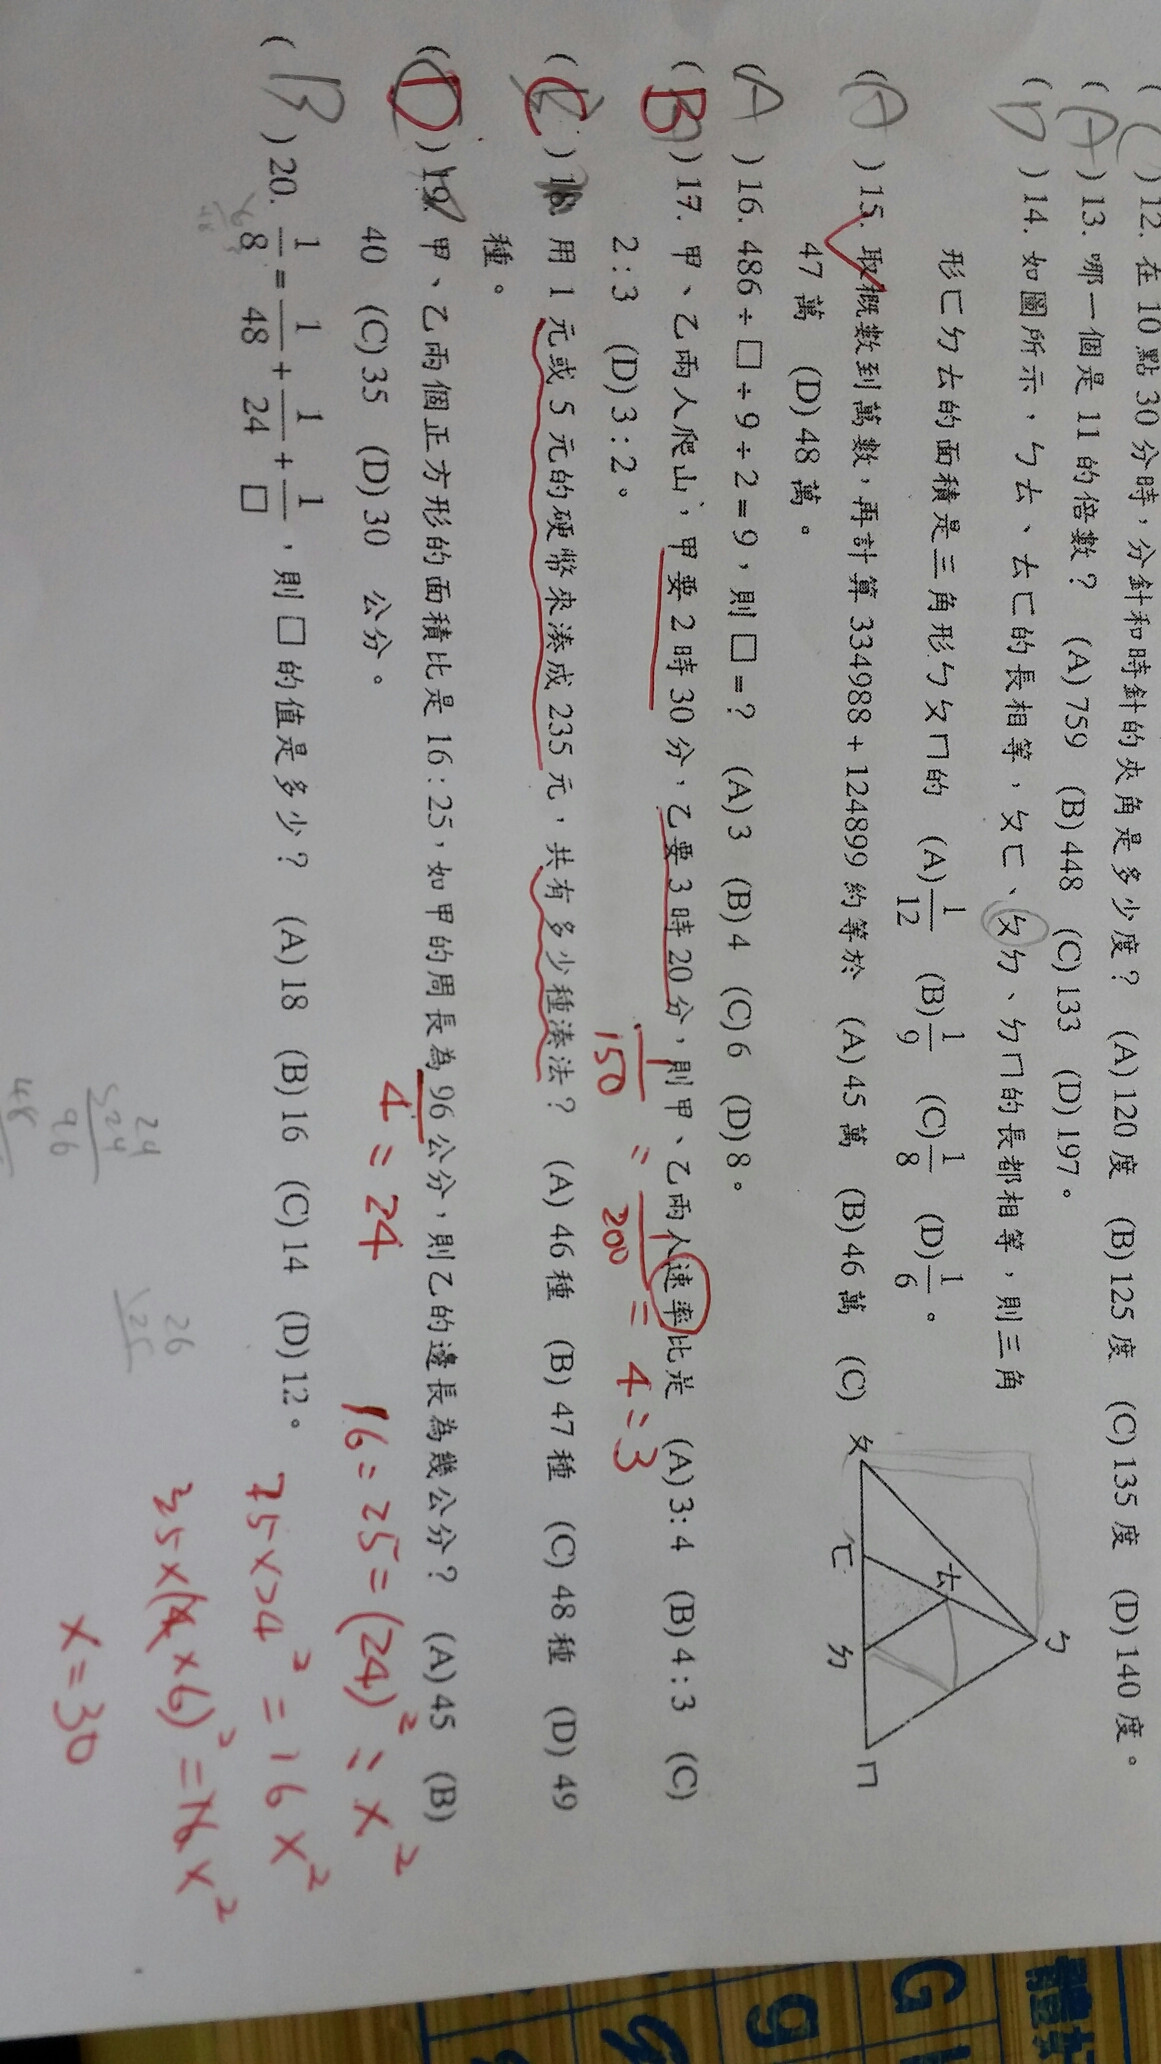 ( ) 12. 在 10 點 30 分時，分針和時針的夾角是多少度？ (A) 120 度 (B) 125 度 (C) 135 度 (D) 140 度。
( A ) 13. 哪一個是 11 的倍數？ (A) 759 (B) 448 (C) 133 (D) 197。
( D ) 14. 如圖所示，ㄅㄊ、ㄊㄈ的長相等，ㄆㄈ、ㄆㄉ、ㄉㄇ的長都相等，則三角
形ㄈㄉㄊ的面積是三角形ㄅㄆㄇ的 (A) 1/12 (B) 1/9 (C) 1/8 (D) 1/6 。
( A ) 15. 取概數到萬數，再計算 334988 + 124899 約等於 (A) 45 萬 (B) 46 萬 (C)
47 萬 (D) 48 萬。
( A ) 16. 486 ÷ □ ÷ 9 ÷ 2 = 9，則 □ = ? (A) 3 (B) 4 (C) 6 (D) 8。
( B ) 17. 甲、乙兩人爬山，甲要 2 時 30 分，乙要 3 時 20 分，則甲、乙兩人速率比是 (A) 3 : 4 (B) 4 : 3 (C)
2 : 3 (D) 3 : 2。
1/150 : 1/200 = 4 : 3
( C ) 18. 用 1 元或 5 元的硬幣來湊成 235 元，共有多少種湊法？ (A) 46 種 (B) 47 種 (C) 48 種 (D) 49
種。
( D ) 19. 甲、乙兩個正方形的面積比是 16 : 25，如甲的周長為 96 公分，則乙的邊長為幾公分？ (A) 45 (B)
40 (C) 35 (D) 30 公分。
4 = 24
16 : 25 = (24)² : x²
25 x 24² = 16 x²
25 x (4 x 6)² = 16 x²
x = 30
( B ) 20. 1/8 = 1/48 + 1/24 + 1/□，則 □ 的值是多少？ (A) 18 (B) 16 (C) 14 (D) 12。
ㄅ
ㄊ
ㄆ
ㄈ
ㄉ
ㄇ
24
96
48
26
G
g